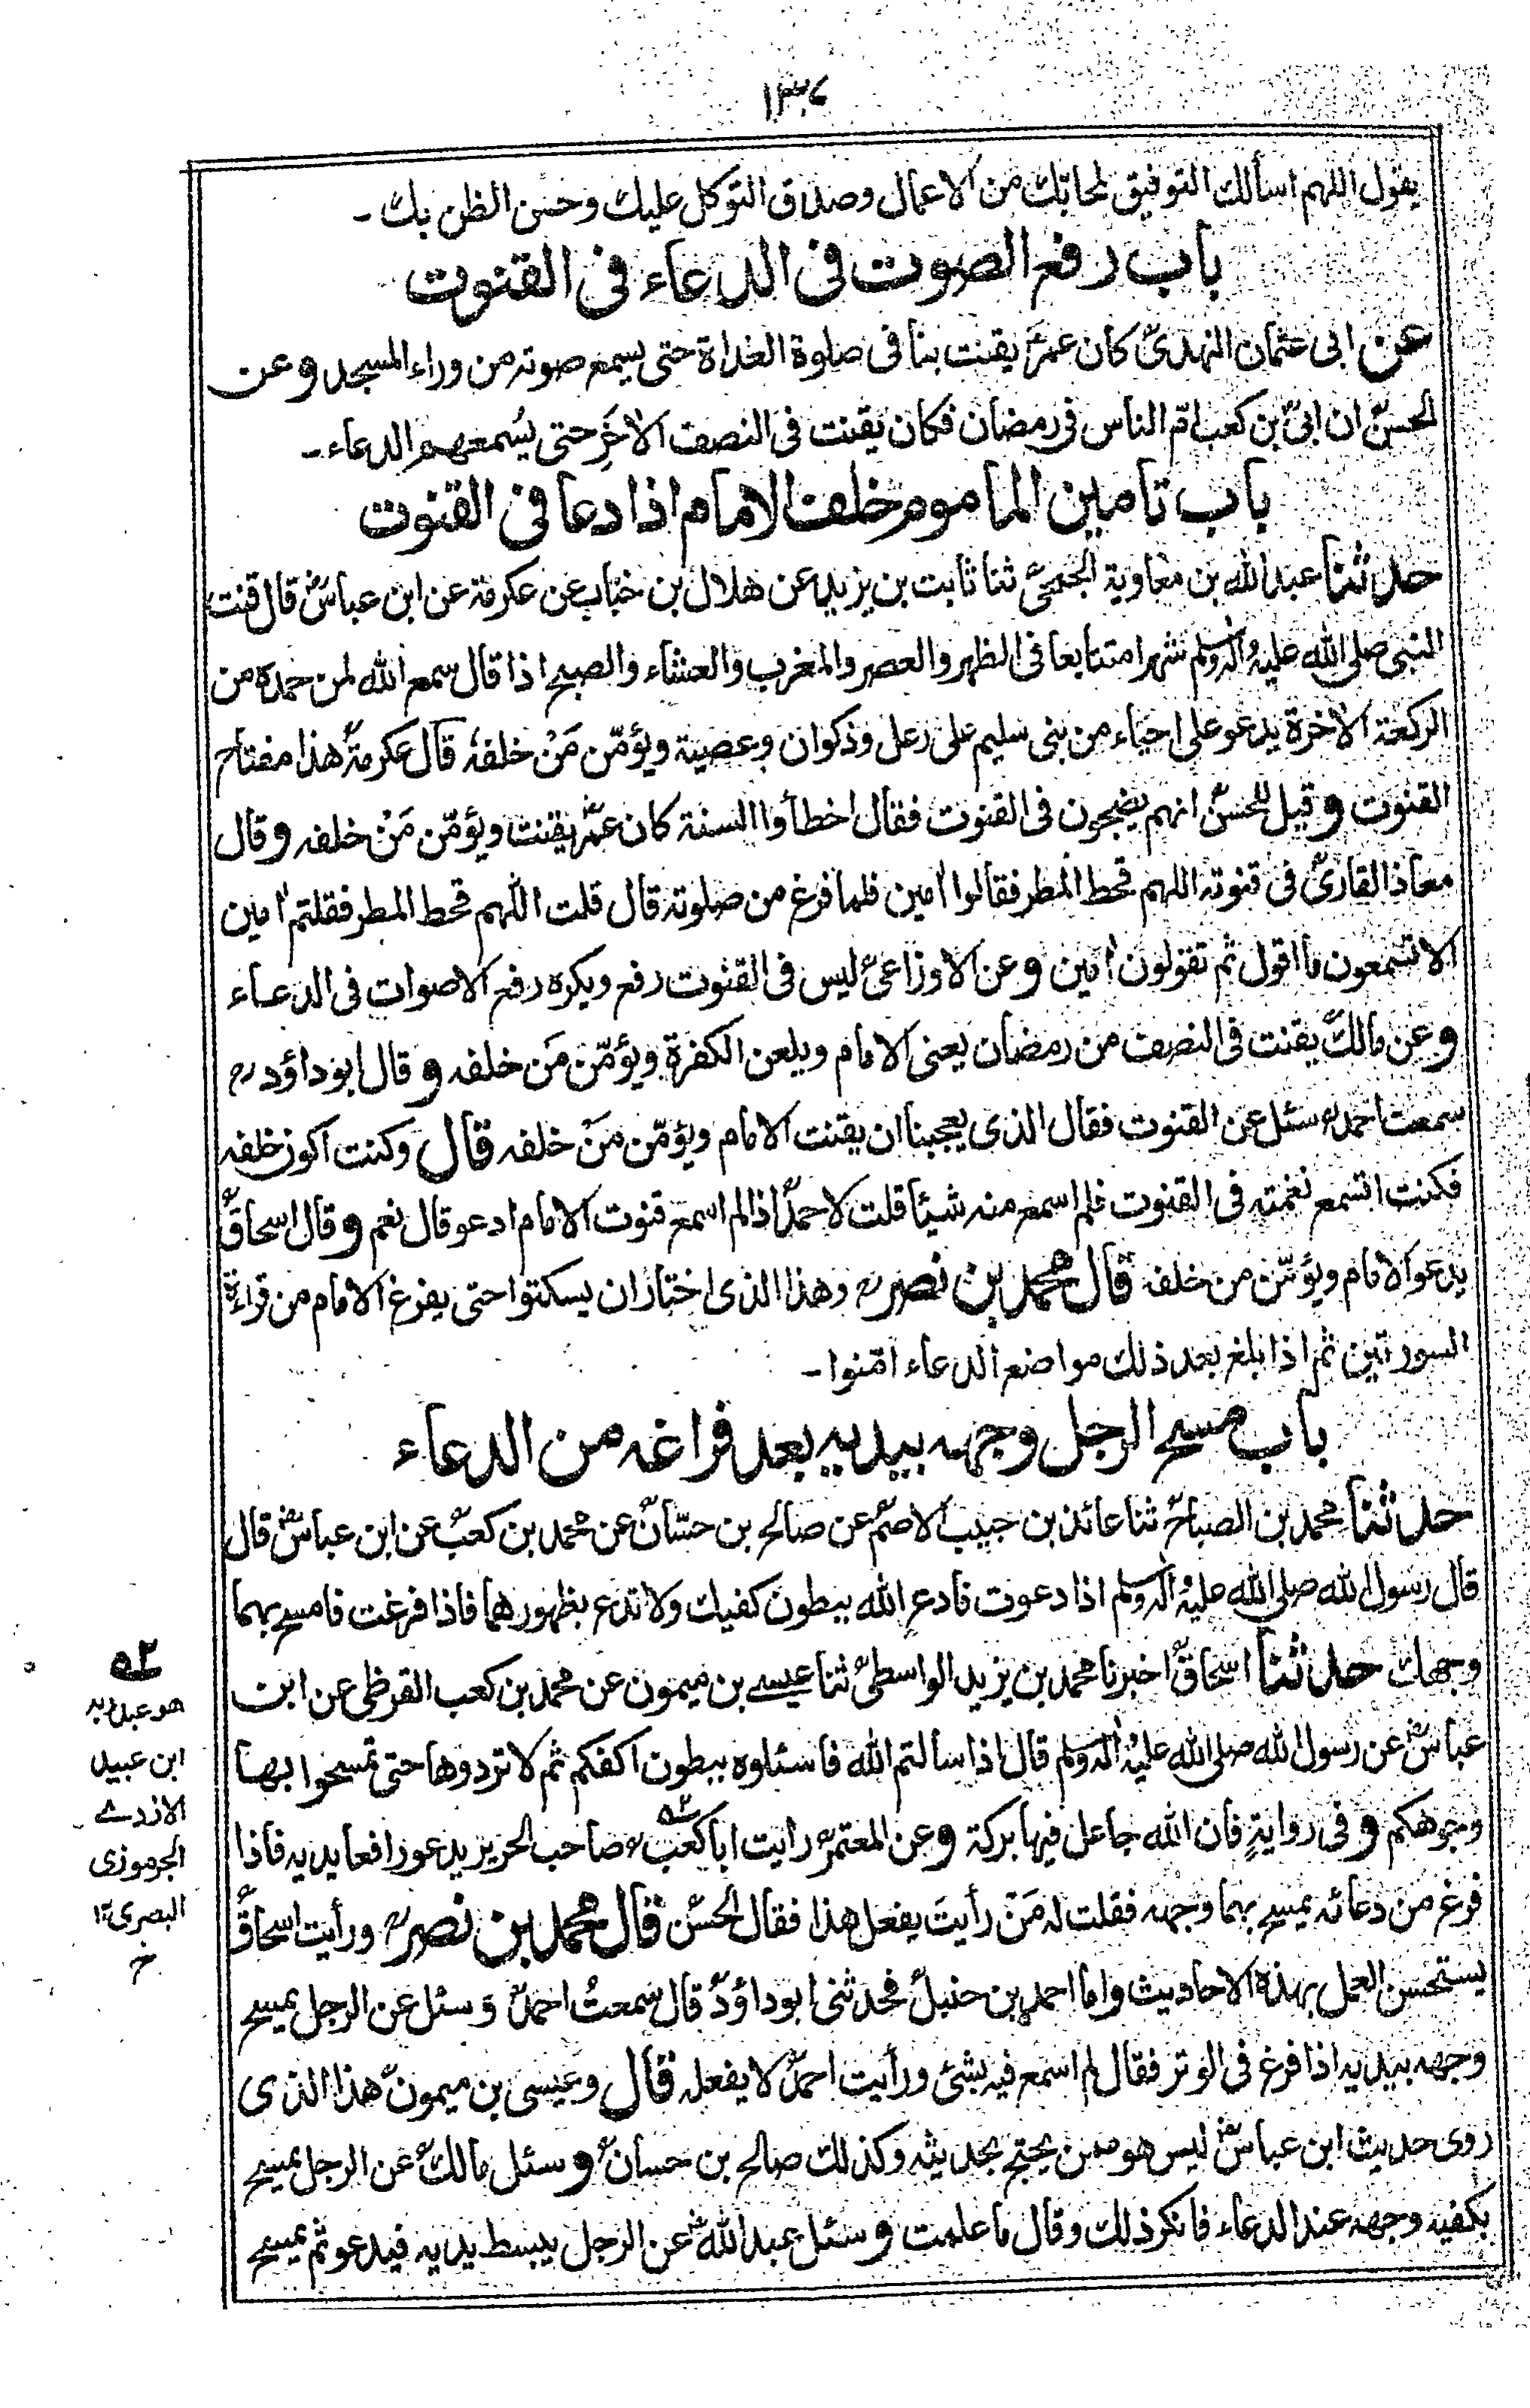 ۱۳۶
يقول اللهم اسألك التوفيق لمحابّك من الاعمال وصدق التوكل عليك وحسن الظن بك ـ
باب رفع الصوت فى الدعاء فى القنوت
عن ابى عثمان النهدىؒ كان عمرؓ يقنت بنا فى صلوة الغداة حتى يسمع صوته من وراء المسجد وعن
الحسنؒ ان ابىّ بن كعب امّ الناس فى رمضان فكان يقنت فى النصف الاٰخَرِ حتى يُسمعهم الدعاء ـ
باب تامين الماموم خلف الامام اذا دعا فى القنوت
حدثنا عبد الله بن معاوية الجمحىؒ ثنا ثابت بن يزيد عن هلال بن خبّاب عن عكرمة عن ابن عباسؓ قال قنت
النبى صلى الله عليه واٰله وسلم شهرا متتابعا فى الظهر والعصر والمغرب والعشاء والصبح اذا قال سمع الله لمن حمده من
الركعة الاٰخرة يدعو على احياء من بنى سليم على رعل وذكوان وعصية ويؤمّن مَنْ خلفهٗ قال عكرمةؒ هذا مفتاح
القنوت وقيل للحسنؒ انهم يضجون فى القنوت فقال اخطأوا السنة كان عمرؓ يقنت ويؤمّن مَنْ خلفه وقال
معاذ القارىؒ فى قنوته اللهم قحط المطر فقالوا اٰمين فلما فرغ من صلوته قال قلت اللهم قحط المطر فقلتم اٰمين
الا تسمعون ما اقول ثم تقولون اٰمين وعن الاوزاعىؒ ليس فى القنوت رفع ويكره رفع الاصوات فى الدعاء
وعن مالكؒ يقنت فى النصف من رمضان يعنى الامام ويلعن الكفرة ويؤمّن مَن خلفه وقال ابو داؤد رح
سمعت احمدؒ سئل عن القنوت فقال الذى يعجبنا ان يقنت الامام ويؤمّن مَنْ خلفه قال وكنت اكون خلفه
فكنت اتسمع نغمته فى القنوت فلم اسمع منه شيئا قلت لاحمدؒ اذا لم اسمع قنوت الامام ادعو قال نعم وقال اسحاقؒ
يدعو الامام ويؤمّن من خلفه قال محمد بن نصرؒ وهذا الذى اختار ان يسكتوا حتى يفرغ الامام من قراءة
السورتين ثم اذا بلغ بعد ذلك مواضع الدعاء امّنوا ـ
باب مسح الرجل وجهه بيديه بعد فراغه من الدعاء
حدثنا محمد بن الصباحؒ ثنا عائذ بن حبيب الاصمّ عن صالح بن حسّانؒ عن محمد بن كعبؒ عن ابن عباسؓ قال
قال رسول الله صلى الله عليه واٰله وسلم اذا دعوت فادع الله ببطون كفيك ولا تدع بظهورهما فاذا فرغت فامسح بهما
وجهك حدثنا اسحاقؒ اخبرنا محمد بن يزيد الواسطىؒ ثنا عيسے بن ميمون عن محمد بن كعب القرظى عن ابن
عباسؓ عن رسول الله صلى الله عليه واٰله وسلم قال اذا سالتم الله فاسئلوه ببطون اكفكم ثم لا تردوها حتى تمسحوا بها
وجوهكم وفى روايةٍ فان الله جاعل فيها بركة وعن المعتمرؒ رايت ابا كعبؒ ۵۲ صاحب الحرير يدعو رافعا يديه فاذا
فرغ من دعائه يمسح بهما وجهه فقلت له مَنْ رأيتَ يفعل هذا فقال الحسنؒ قال محمد بن نصرؒ ورأيت اسحاقؒ
يستحسن العمل بهذه الاحاديث واما احمد بن حنبلؒ فحدثنى ابو داؤدؒ قال سمعتُ احمدؒ وَسئل عن الرجل يمسح
وجهه بيديه اذا فرغ فى الوتر فقال لم اسمع فيه بشئ ورأيت احمدؒ لا يفعله قال وعيسى بن ميمونؒ هذا الذى
روى حديث ابن عباسؓ ليس هو ممن يحتج بحديثه وكذلك صالح بن حسانؒ وسئل مالكؒ عن الرجل يمسح
بكفيه وجهه عند الدعاء فانكر ذلك وقال ما علمت وسئل عبد اللهؒ عن الرجل يبسط يديه فيدعو ثم يمسح
۵۲
هو عبد ربه
ابن عبيد
الازدے
الجرموزى
البصرى ۱۲